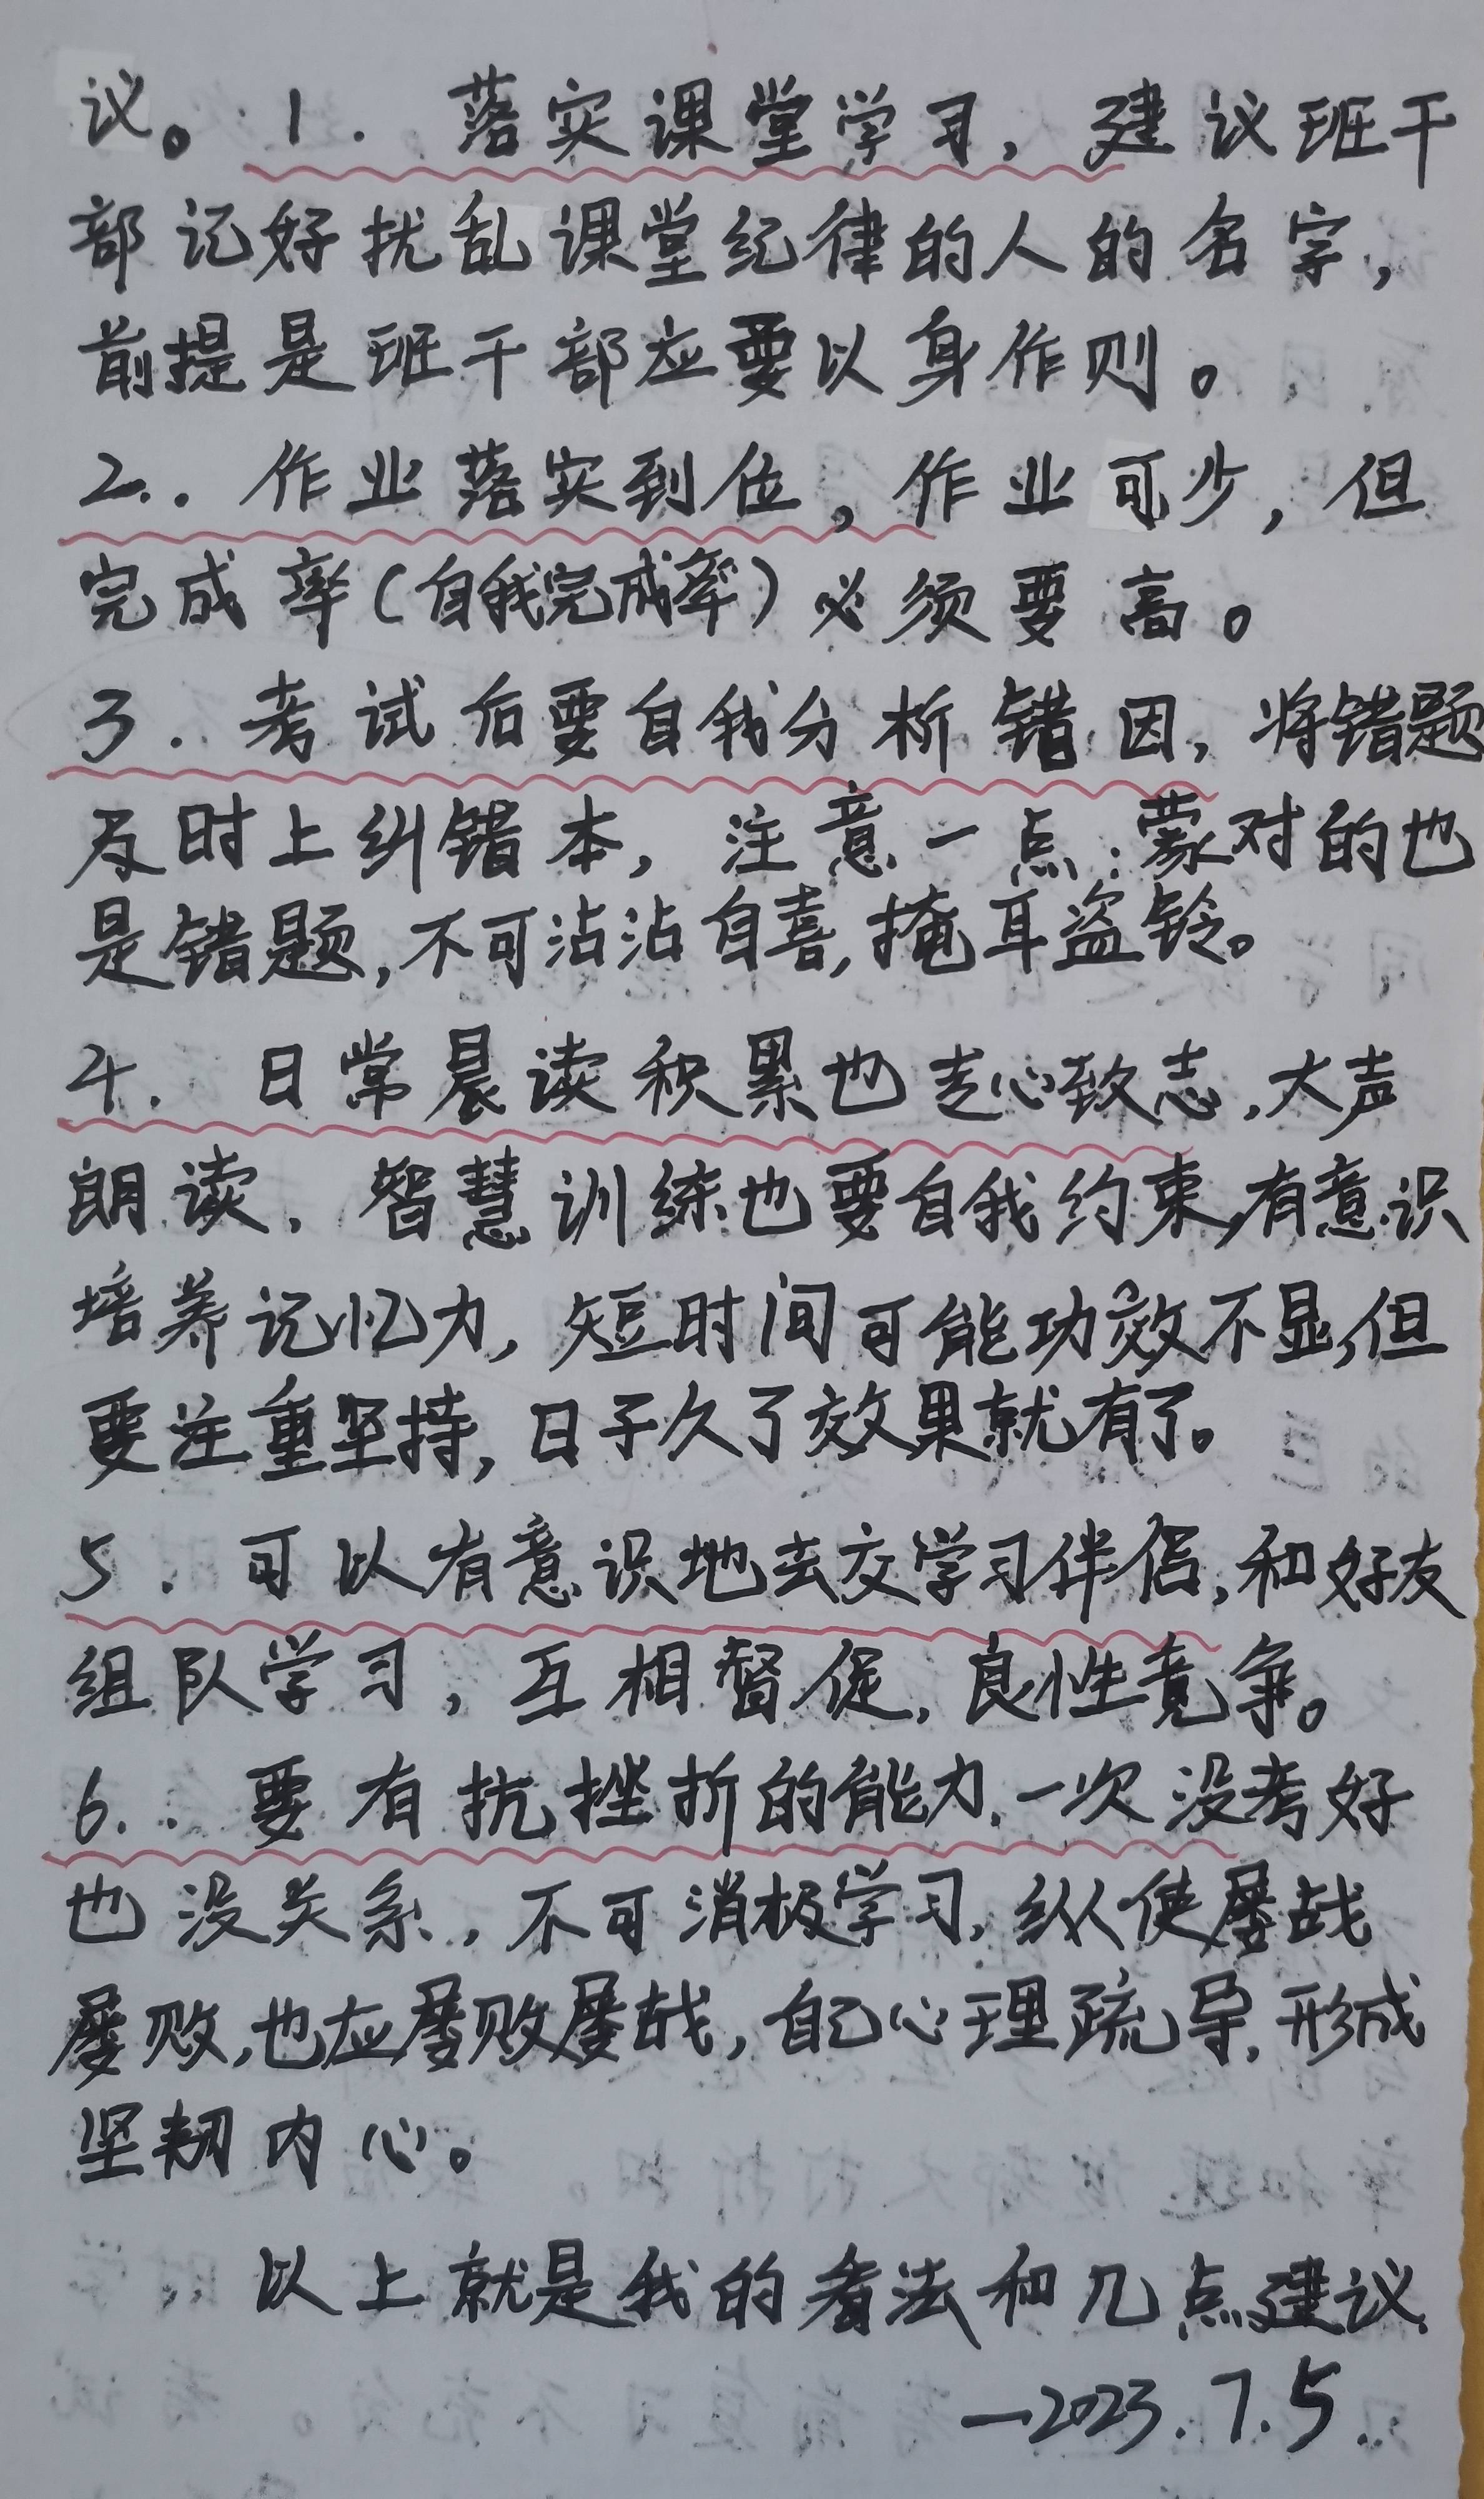 议。1. 落实课堂学习，建议班干
部记好扰乱课堂纪律的人的名字，
前提是班干部应要以身作则。
2.. 作业落实到位，作业可少，但
完成率(自我完成率)必须要高。
3. 考试后要自我分析错因，将错题
及时上纠错本，注意一点：蒙对的也
是错题，不可沾沾自喜，掩耳盗铃。
4. 日常晨读积累也走心致志，大声
朗读，智慧训练也要自我约束，有意识
培养记忆力，短时间可能功效不显，但
要注重坚持，日子久了效果就有了。
5. 可以有意识地去交学习伴侣，和好友
组队学习，互相督促，良性竞争。
6.. 要有抗挫折的能力，一次没考好
也没关系，不可消极学习，纵使屡战
屡败，也应屡败屡战，自己心理疏导，形成
坚韧内心。
以上就是我的看法和几点建议.
—2023.7.5.